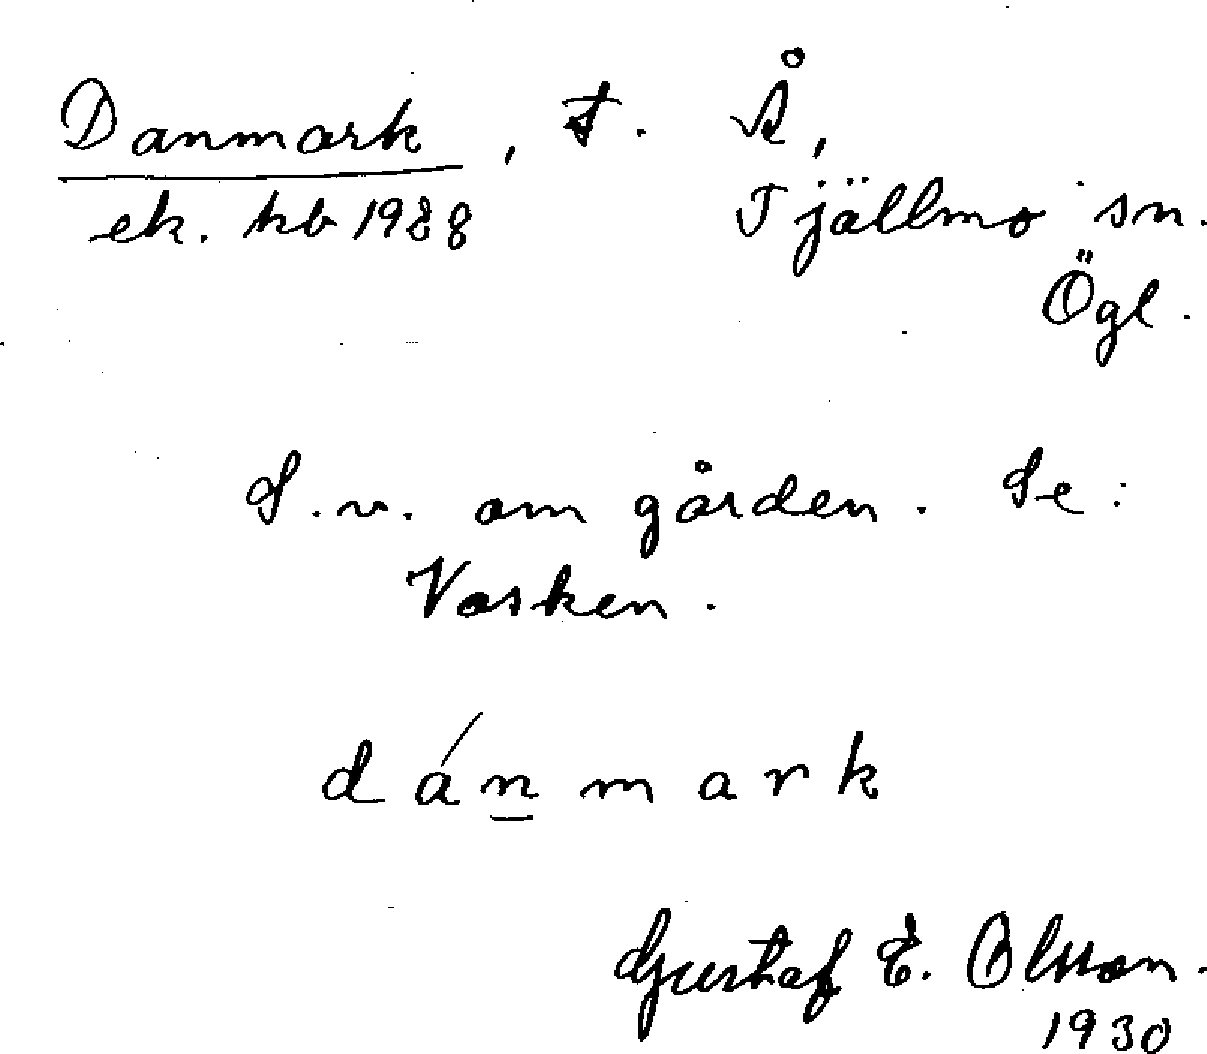 Danmark, t. Å,
ek. kb 1928
Tjällmo sn.
Ögl.
S.v. om gården. Se:
Vasken.
dánmark
Gustaf E. Olsson.
1930